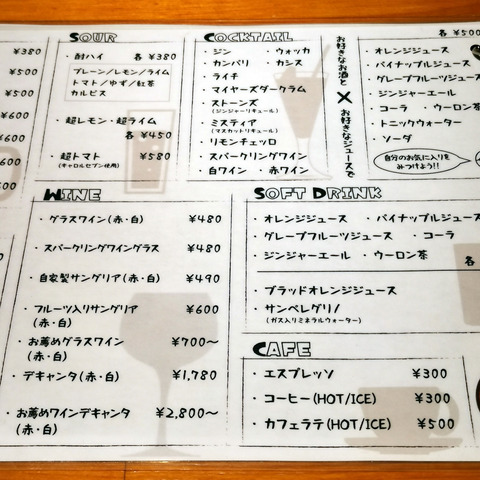 ¥380
¥500
¥500
¥600
¥600
600
600
SOUR
・酎ハイ 各 ¥380
プレーン/レモン/ライム
トマト/ゆず/紅茶
カルピス
・超レモン・超ライム
各 ¥450
・超トマト ¥580
(キャロルセブン使用)
COCKTAIL
・ジン ・ウォッカ
・カンパリ ・カシス
・ライチ
・マイヤーズダークラム
・ストーンズ
(ジンジャーリキュール)
・ミスティア
(マスカットリキュール)
・リモンチェッロ
・スパークリングワイン
・白ワイン ・赤ワイン
お好きなお酒と
×
お好きなジュースで
各 ¥500
・オレンジジュース
・パイナップルジュース
・グレープフルーツジュース
・ジンジャーエール
・コーラ ・ウーロン茶
・トニックウォーター
・ソーダ
自分のお気に入りを
みつけよう!!
WINE
・グラスワイン(赤・白) ¥480
・スパークリングワイングラス ¥480
・自家製サングリア(赤・白) ¥490
・フルーツ入りサングリア ¥600
(赤・白)
・お薦めグラスワイン ¥700〜
(赤・白)
・デキャンタ(赤・白) ¥1,780
・お薦めワインデキャンタ ¥2,800〜
(赤・白)
SOFT DRINK
・オレンジジュース ・パイナップルジュース
・グレープフルーツジュース ・コーラ
・ジンジャーエール ・ウーロン茶 各
・ブラッドオレンジジュース
・サンペレグリノ
(ガス入りミネラルウォーター)
CAFE
・エスプレッソ ¥300
・コーヒー(HOT/ICE) ¥300
・カフェラテ(HOT/ICE) ¥500